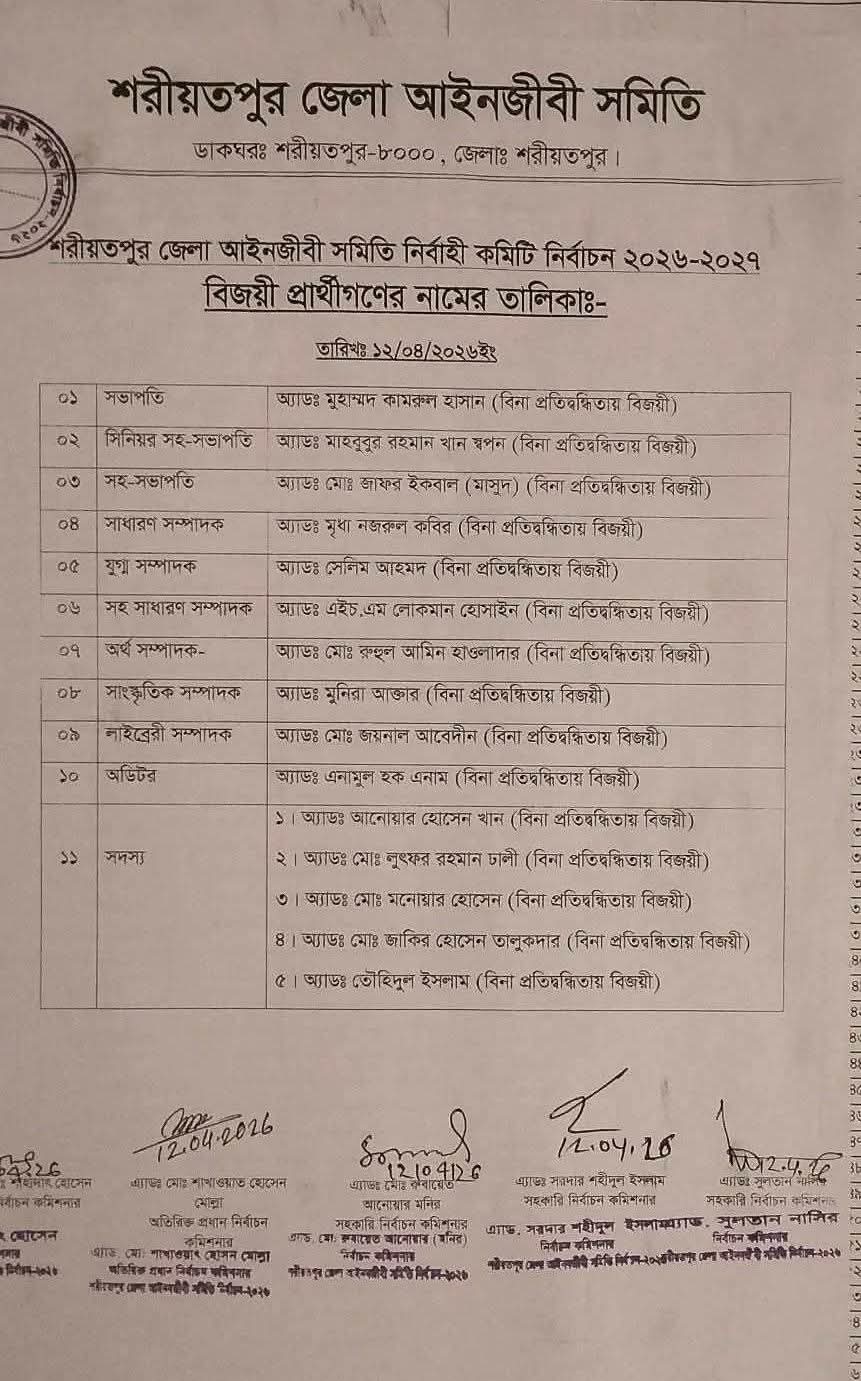 শরীয়তপুর জেলা আইনজীবী সমিতি
ডাকঘরঃ শরীয়তপুর-৮০০০, জেলাঃ শরীয়তপুর।
শরীয়তপুর জেলা আইনজীবী সমিতি নির্বাহী কমিটি নির্বাচন ২০২৬-২০২৭
বিজয়ী প্রার্থীগণের নামের তালিকাঃ-
তারিখঃ ১২/০৪/২০২৬ইং
০১ সভাপতি অ্যাডঃ মুহাম্মদ কামরুল হাসান (বিনা প্রতিদ্বন্ধিতায় বিজয়ী)
০২ সিনিয়র সহ-সভাপতি অ্যাডঃ মাহবুবুর রহমান খান স্বপন (বিনা প্রতিদ্বন্ধিতায় বিজয়ী)
০৩ সহ-সভাপতি অ্যাডঃ মোঃ জাফর ইকবাল (মাসুদ) (বিনা প্রতিদ্বন্ধিতায় বিজয়ী)
০৪ সাধারণ সম্পাদক অ্যাডঃ মৃধা নজরুল কবির (বিনা প্রতিদ্বন্ধিতায় বিজয়ী)
০৫ যুগ্ম সম্পাদক অ্যাডঃ সেলিম আহমদ (বিনা প্রতিদ্বন্ধিতায় বিজয়ী)
০৬ সহ সাধারণ সম্পাদক অ্যাডঃ এইচ.এম লোকমান হোসাইন (বিনা প্রতিদ্বন্ধিতায় বিজয়ী)
০৭ অর্থ সম্পাদক- অ্যাডঃ মোঃ রুহুল আমিন হাওলাদার (বিনা প্রতিদ্বন্ধিতায় বিজয়ী)
০৮ সাংস্কৃতিক সম্পাদক অ্যাডঃ মুনিরা আক্তার (বিনা প্রতিদ্বন্ধিতায় বিজয়ী)
০৯ লাইব্রেরী সম্পাদক অ্যাডঃ মোঃ জয়নাল আবেদীন (বিনা প্রতিদ্বন্ধিতায় বিজয়ী)
১০ অডিটর অ্যাডঃ এনামুল হক এনাম (বিনা প্রতিদ্বন্ধিতায় বিজয়ী)
১১ সদস্য ১। অ্যাডঃ আনোয়ার হোসেন খান (বিনা প্রতিদ্বন্ধিতায় বিজয়ী)
২। অ্যাডঃ মোঃ লুৎফর রহমান ঢালী (বিনা প্রতিদ্বন্ধিতায় বিজয়ী)
৩। অ্যাডঃ মোঃ মনোয়ার হোসেন (বিনা প্রতিদ্বন্ধিতায় বিজয়ী)
৪। অ্যাডঃ মোঃ জাকির হোসেন তালুকদার (বিনা প্রতিদ্বন্ধিতায় বিজয়ী)
৫। অ্যাডঃ তৌহিদুল ইসলাম (বিনা প্রতিদ্বন্ধিতায় বিজয়ী)
12.04.2026
12/04/26
12.04.26
হোসেন
নির্বাচন কমিশনার
হোসেন
নির্বাচন-২০২৬
এ্যাডঃ মোঃ শাখাওয়াত হোসেন
মোল্লা
অতিরিক্ত প্রধান নির্বাচন
কমিশনার
এ্যাড. মোঃ শাখাওয়াৎ হোসেন মোল্লা
অতিরিক্ত প্রধান নির্বাচন কমিশনার
শরীয়তপুর জেলা আইনজীবী সমিতি নির্বাচন-২০২৬
এ্যাডঃ মোঃ
আনোয়ার মনির
সহকারি নির্বাচন কমিশনার
এ্যাড. মোঃ রুবায়েত আনোয়ার (মনির)
নির্বাচন কমিশনার
শরীয়তপুর জেলা আইনজীবী সমিতি নির্বাচন-২০২৬
এ্যাডঃ সরদার শহীদুল ইসলাম
সহকারি নির্বাচন কমিশনার
এ্যাড. সরদার শহীদুল ইসলাম
নির্বাচন কমিশনার
শরীয়তপুর জেলা আইনজীবী সমিতি নির্বাচন-২০২৬
এ্যাডঃ সুলতান নাসির
সহকারি নির্বাচন কমিশনার
এ্যাড. সুলতান নাসির
নির্বাচন কমিশনার
শরীয়তপুর জেলা আইনজীবী সমিতি নির্বাচন-২০২৬